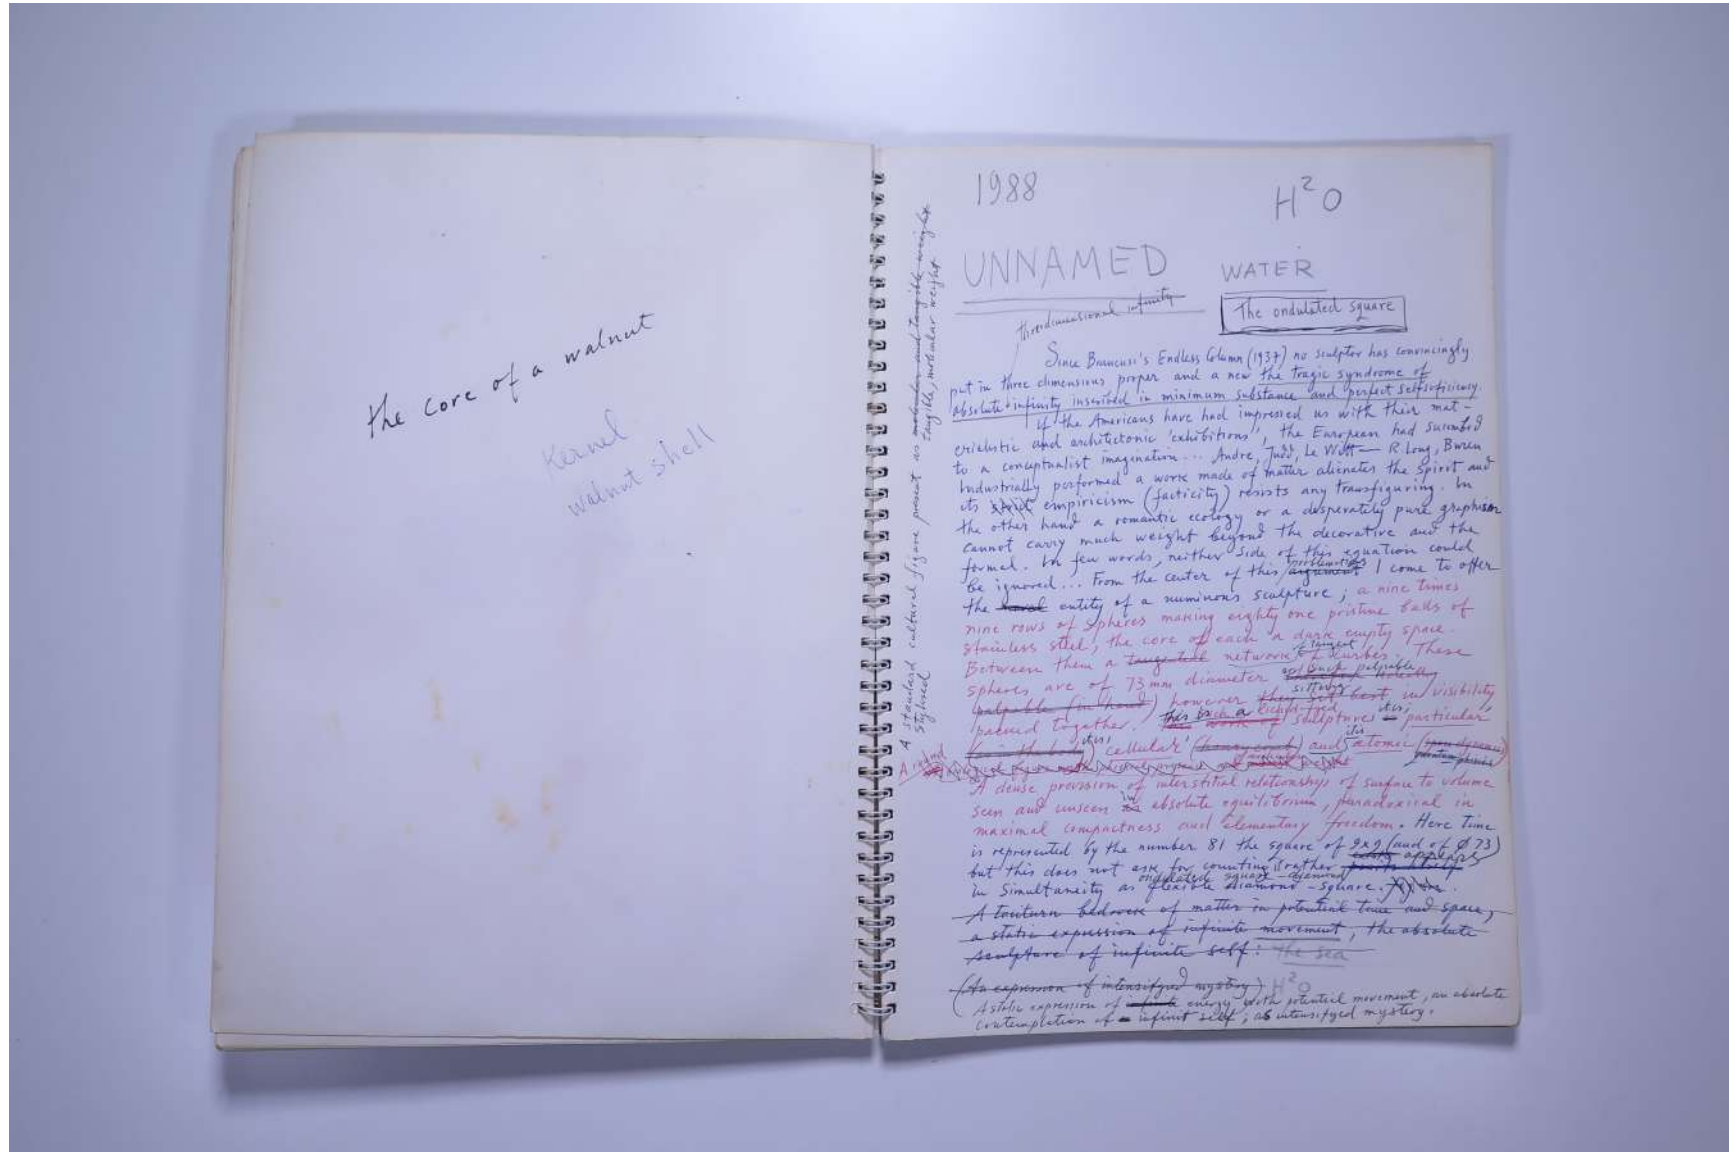 the core of a walnut
Kernel
walnut shell
1988
H²O
UNNAMED
WATER
three dimensional infinity
The ondulated square
Since Brancusi's Endless Column (1937) no sculptor has convincingly
put in three dimensions proper and a new the tragic syndrome of
absolute + infinity inscribed in minimum substance and perfect selfsuficiency.
If the Americans have had impressed us with their mat-
erialistic and architectonic 'exhibitions", the European had sucumbed
to a conceptualist imagination... Andre, Judd, Le Witt — R Long, Buren
Industrially performed a work made of matter alienates the spirit and
its empiricism (facticity) resists any transfiguring. In
the other hand a romantic ecology or a desperately pure graphism
cannot carry much weight beyond the decorative and the
formal. In few words, neither side of this equation could
be ignored... From the center of this argument I come to offer
the entity of a numinous sculpture; a nine times
nine rows of spheres making eighty one pristine balls of
stainless steel, the core of each a dark empty space.
Between them a tangential network of curbes. These
of tangent
spheres are of 73 mm diameter
and back palpable
palpable (in hand) however they best in visibility
sitting
packed together. This is a sculpture particular,
cellular (honey comb) and atomic
it is,
it is
A round
A dense provision of interstitial relationships of surface to volume
seen and unseen in absolute equilibrium, paradoxical in
maximal compactness and elementary freedom. Here time
is represented by the number 81 the square of 9x9 (and of Ø 73)
but this does not ask for counting rather appears
ondulated square - diamond
in Simultaneity as flexible diamond - square.
A taciturn bedrock of matter in potential time and space,
a static expression of infinite movement, the absolute
sculpture of infinite self: the sea
(An expression of intensifyed mystery) H²O
A static expression of energy with potential movement, an absolute
contemplation of infinit self, as intensifyed mystery.
A standard cultural figure present as molecular and tangible weight
stylised
tangible, molecular weight